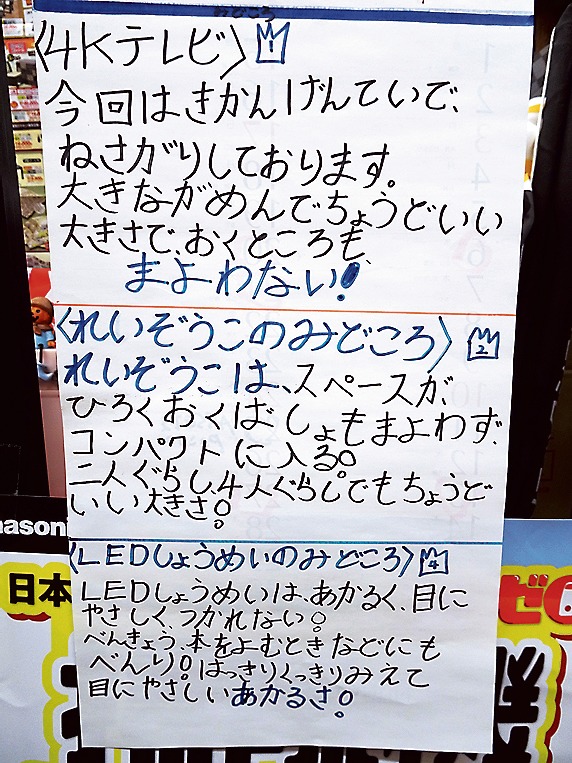 みどころ
〈4Kテレビ〉1
今回はきかんげんていで、
ねさがりしております。
大きながめんでちょうどいい
大きさで、おくところも、
まよわない!
〈れいぞうこのみどころ〉2
れいぞうこは、スペースが
ひろくおくばしょもまよわず、
コンパクトに入る。
二人ぐらし、4人ぐらしでもちょうど
いい大きさ。
〈LEDしょうめいのみどころ〉4
LEDしょうめいは、あかるく、目に
やさしく、つかれない。
べんきょう、本をよむときなどにも
べんり。はっきりくっきりみえて
目にやさしいあかるさ。
nasoni
日本